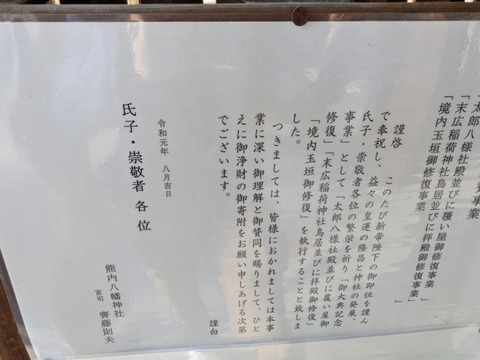 「太郎八様社殿並びに覆い屋御修復事業」
「末広稲荷神社鳥居並びに拝殿御修復事業」
「境内玉垣御修復事業」
謹啓　このたび新帝陛下の御即位を謹ん
で奉祝し、益々の皇運の隆昌と神社の発展、
氏子・崇敬者各位の繁栄を祈り「御大典記念
事業」として「太郎八様社殿並びに覆い屋御
修復」「末広稲荷神社鳥居並びに拝殿御修復」
「境内玉垣御修復」を執行することと致しま
した。
つきましては、皆様におかれましては本事
業に深い御理解と御賛同を賜りまして、ひと
えに御浄財の御寄附をお願い申しあげる次第
でございます。
謹白
令和元年　八月吉日
氏子・崇敬者 各位
熊内八幡神社
宮司　齊藤則夫